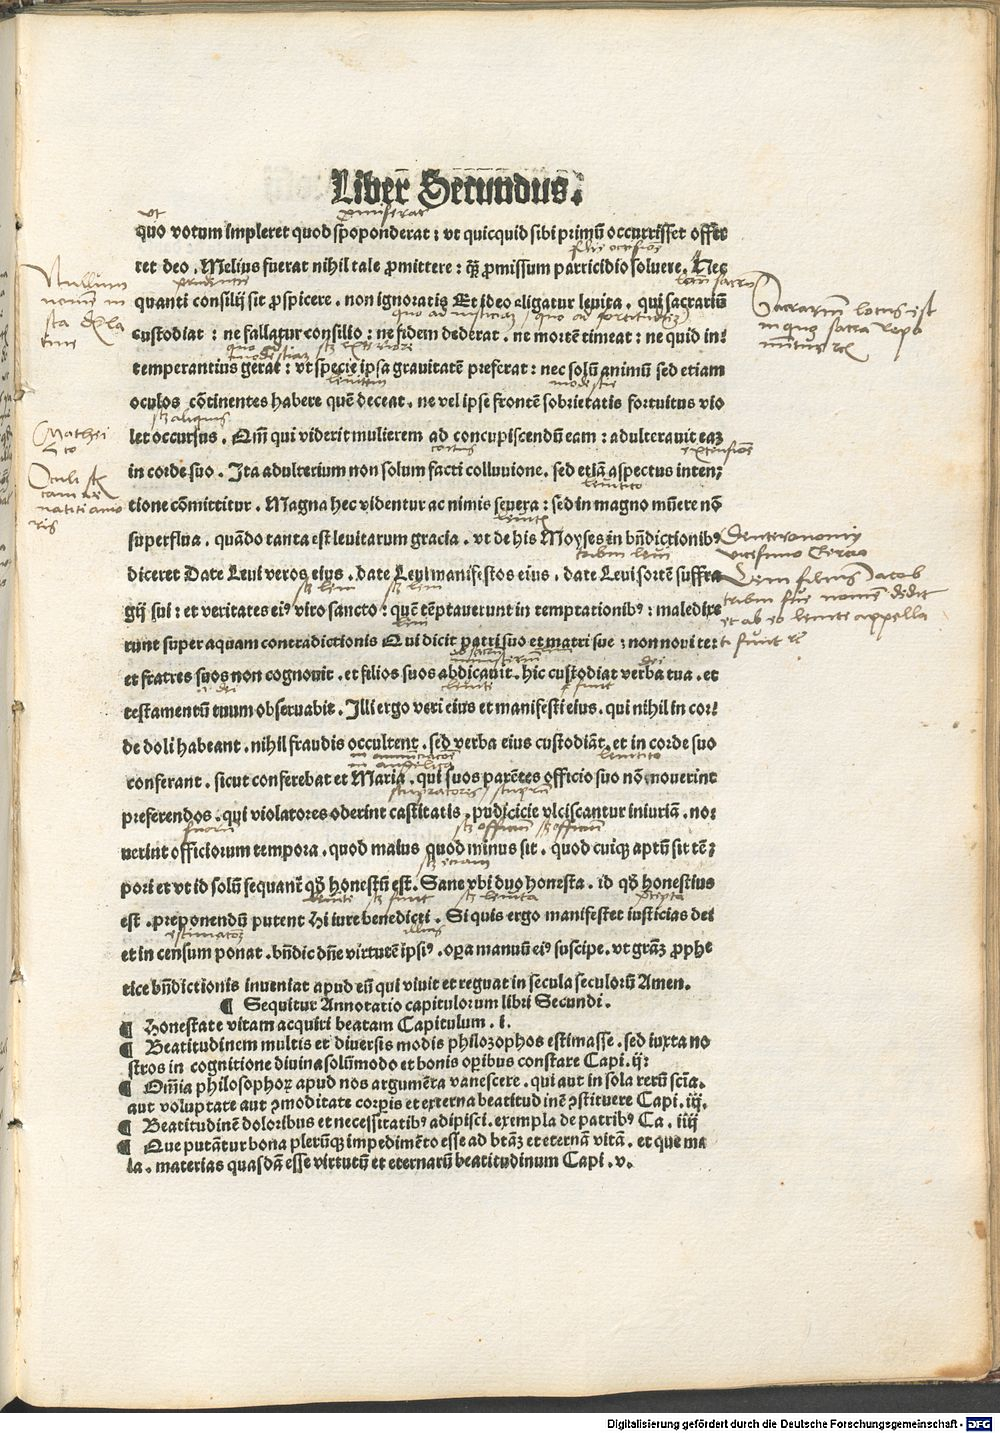 Liber Secundus.
quo votum impleret quod spoponderat : vt quicquid sibi primū occurrisset offer
ret deo . Melius fuerat nihil tale ꝓmittere : qꝫ̄ ꝓmissum parricidio soluere . Hec
quanti consilij sit ꝓspicere . non ignoratis Et ideo eligatur leuita . qui sacrariū
custodiat : ne fallatur consilio : ne fidem dederat . ne mortē timeat : ne quid in⸗
temperantius gerat : vt specie ipsa grauitatē preferat : nec solū animū sed etiam
oculos cōtinentes habere quē deceat . ne vel ipse frontē sobrietatis fortuitus vio
let occursus . Qm̄ qui viderit mulierem ad concupiscendū eam : adulterauit eaꝫ
in corde suo . Ita adulterium non solum facti colluuione . sed etiā aspectus inten⸗
tione cōmittitur . Magna hec videntur ac nimis seuera : sed in magno mūere nō
superflua . quādo tanta est leuitarum gracia . vt de his Moyses in bn̄dictionibꝰ
diceret Date Leui veros eius . date Leui manifestos eius . date Leui sortē suffra
gij sui : et veritates eiꝰ viro sancto : quē tēptauerunt in temptationibꝰ : maledixe
runt super aquam contradictionis Qui dicit patri suo et matri sue : non noui te :
et fratres suos non cognouit . et filios suos abdicauit . hic custodiat verba tua . et
testamentū tuum obseruabit . Illi ergo veri eius et manifesti eius . qui nihil in cor⸗
de doli habeant . nihil fraudis occultent . sed verba eius custodiāt et in corde suo
conferant . sicut conferebat et Maria . qui suos parētes officio suo nō nouerint
preferendos . qui violatores oderint castitatis . pudicicie vlciscantur iniuriā . no⸗
uerint officiorum tempora . quod maius quod minus sit . quod cuiqꝫ aptū sit tē⸗
pori et vt id solū sequanť qđ honestū est . Sane vbi duo honesta . id qđ honestius
est . preponendū putent Hi iure benedicti . Si quis ergo manifestet iusticias dei
et in censum ponat . bn̄dic dn̄e virtutē ipsiꝰ . oꝑa manuū eiꝰ suscipe . vt grāꝫ ꝓphe
tice bn̄dictionis inueniat apud eū qui viuit et regnat in secula seculorū Amen.
¶ Sequitur Annotatio capitulorum libri Secundi .
¶ Honestate vitam acquiri beatam Capitulum . i .
¶ Beatitudinem multis et diuersis modis philozophos estimasse . sed iuxta no
stros in cognitione diuina solūmodo et bonis oꝑibus constare Capi . ij :
¶ Om̄ia philosophoꝝ apud nos argumēta vanescere . qui aut in sola rerū scīa .
aut voluptate aut ꝯmoditate corꝑis et externa beatitudinē ꝯstituere Capi . iij .
¶ Beatitudinē doloribus et necessitatibꝰ adipisci . exempla de patribꝰ Ca . iiij
¶ Que putātur bona plerūqꝫ impedimēto esse ad btāꝫ et eternā vitā . et que ma
la . materias quasdā esse virtutū et eternarū beatitudinum Capi . v .
Sacrarium locus est
in quo sacra repo
Mathei
Oculi
Deuteronomij
Leui filius Jacob
tribui sue nomen dedit
et ab eo leuite appella
ti sunt
Digitalisierung gefördert durch die Deutsche Forschungsgemeinschaft - DFG